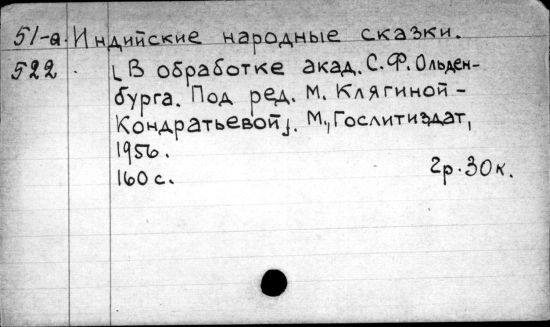 51-а. Индийские народные сказки.
522 [В обработке акад. С.Ф. Ольден-
бурга. Под ред. М. Клягиной-
Кондратьевой]. М., Гослитиздат,
1956.
160 с. 2р. 30к.